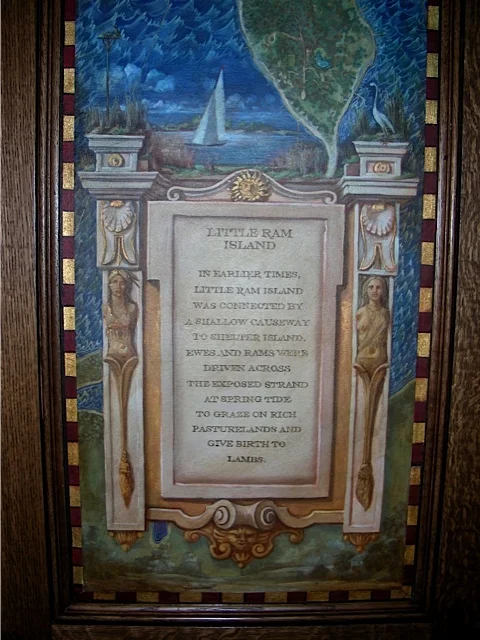 LITTLE RAM
ISLAND
IN EARLIER TIMES,
LITTLE RAM ISLAND
WAS CONNECTED BY
A SHALLOW CAUSEWAY
TO SHELTER ISLAND.
EWES AND RAMS WERE
DRIVEN ACROSS
THE EXPOSED STRAND
AT SPRING TIDE
TO GRAZE ON RICH
PASTURELANDS AND
GIVE BIRTH TO
LAMBS.